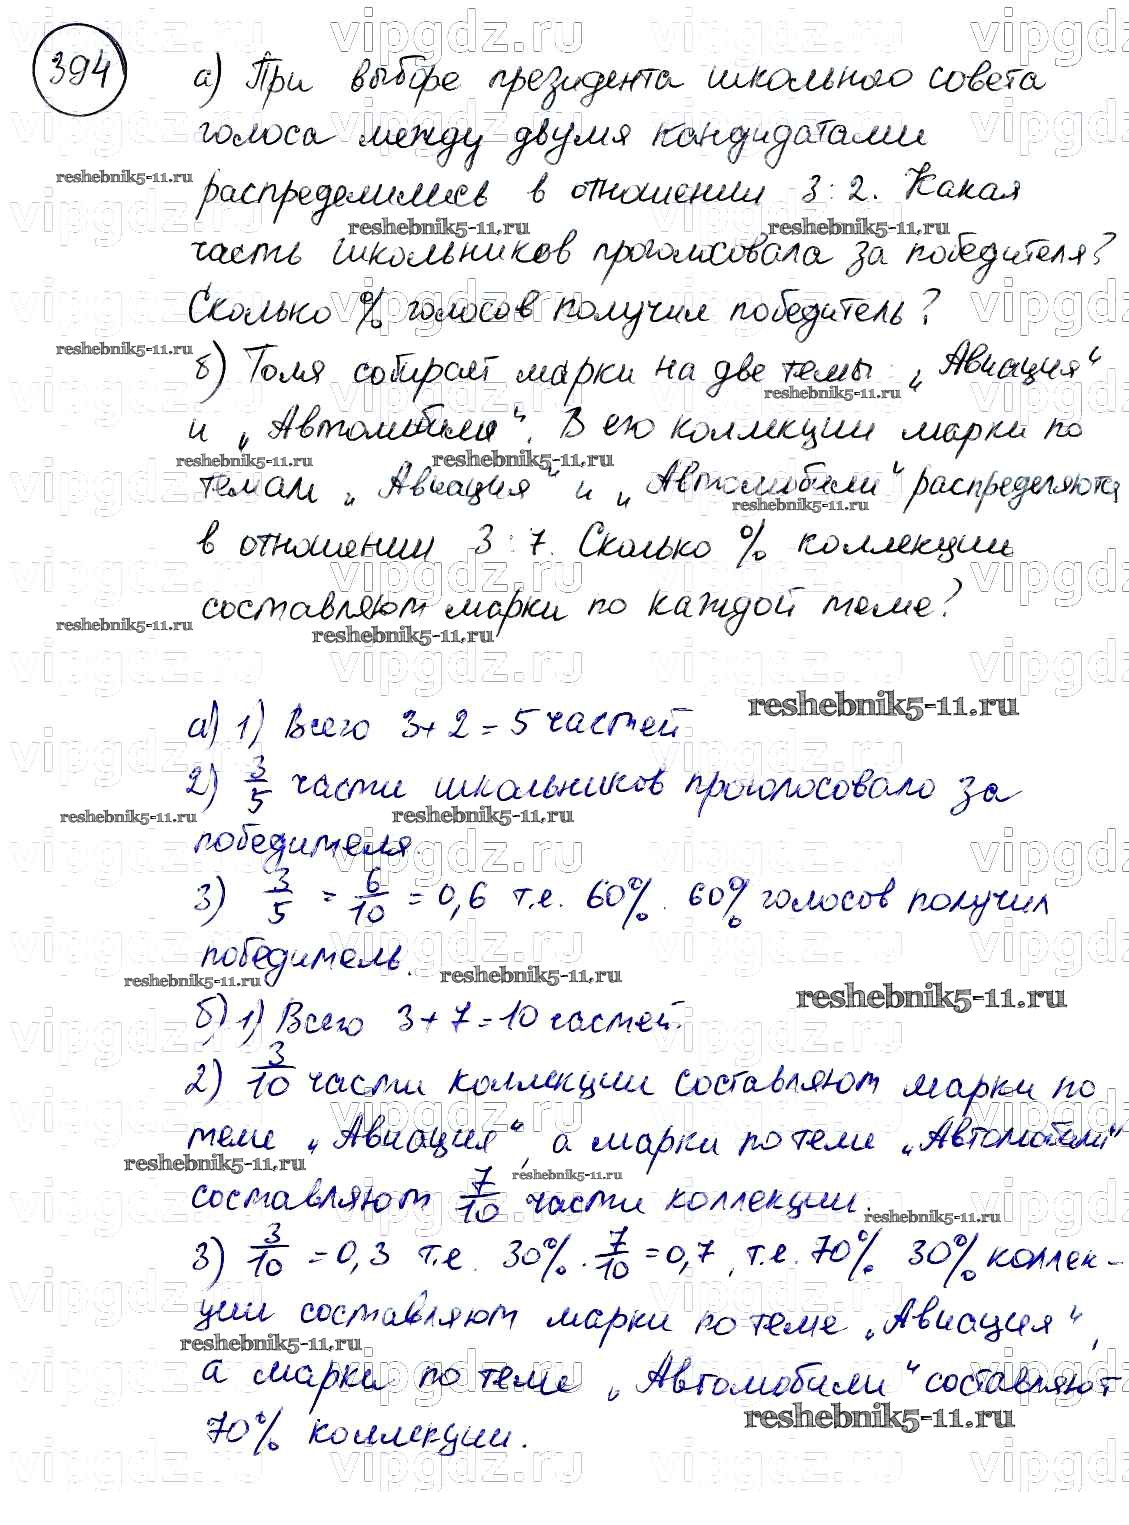 394
а) При выборе президента школьного совета
голоса между двумя кандидатами
распределились в отношении 3:2. Какая
часть школьников проголосовала за победителя?
Сколько % голосов получил победитель?
б) Толя собирает марки на две темы: „Авиация“
и „Автомобили“. В его коллекции марки по
темам „Авиация“ и „Автомобили“ распределяются
в отношении 3:7. Сколько % коллекции
составляют марки по каждой теме?
а) 1) Всего 3+2=5 частей
2) 3/5 части школьников проголосовало за
победителя.
3) 3/5 = 6/10 = 0,6 т.е. 60%. 60% голосов получил
победитель.
б) 1) Всего 3+7=10 частей.
2) 3/10 части коллекции составляют марки по
теме „Авиация“, а марки по теме „Автомобили“
составляют 7/10 части коллекции.
3) 3/10 = 0,3 т.е. 30%. 7/10 = 0,7, т.е. 70%. 30% коллек-
ции составляют марки по теме „Авиация“,
а марки по теме „Автомобили“ составляют
70% коллекции.
vipgdz.ru
reshebnik5-11.ru